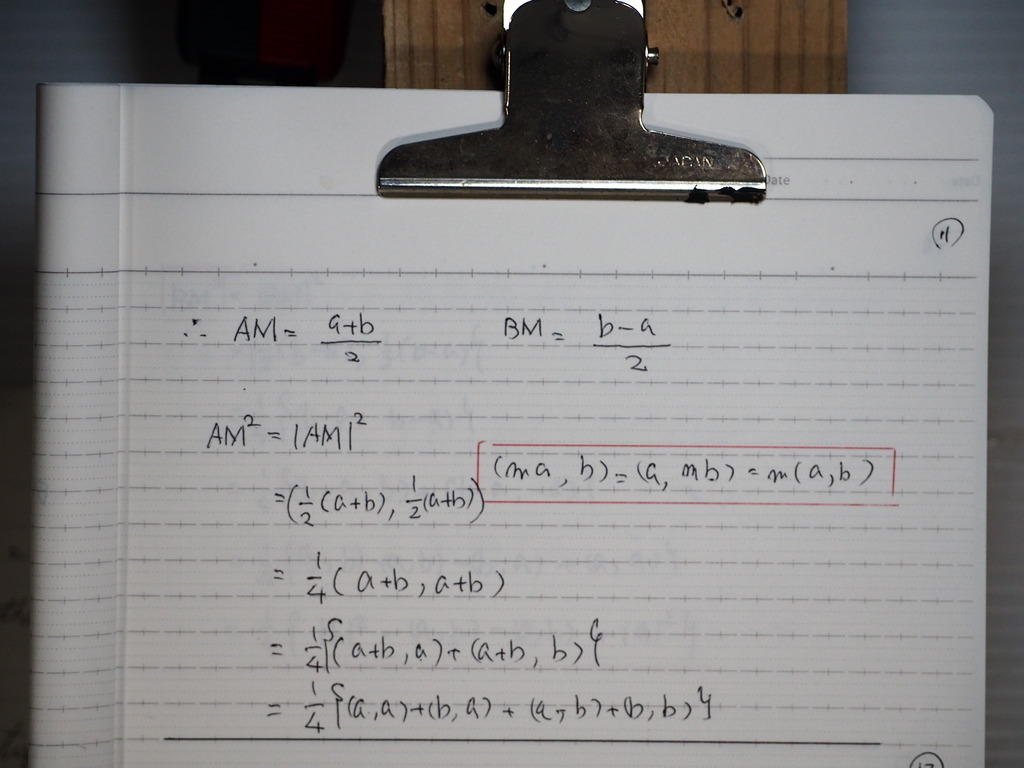 JAPAN
Date
11
∴ AM = a+b/2 BM = b-a/2
AM² = |AM|²
(ma, b) = (a, mb) = m(a, b)
= (1/2(a+b), 1/2(a+b))
= 1/4(a+b, a+b)
= 1/4{(a+b, a)+(a+b, b)}
= 1/4{(a,a)+(b,a)+(a,b)+(b,b)}